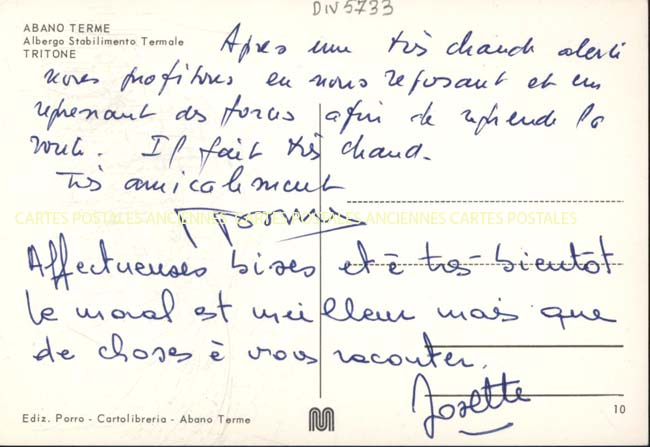 DIV5733
ABANO TERME
Albergo Stabilimento Termale
TRITONE
Apres une très chaude alerte
nous profitons en nous reposant et en
reprenant des forces afin de reprendre la
route. Il fait très chaud.
Très amicalement
CARTES POSTALES ANCIENNES CARTES POSTALES ANCIENNES CARTES POSTALES
Affectueuses bises et à très bientôt
le moral est meilleur mais que
de choses à vous raconter.
Josette
10
Ediz. Porro - Cartolibreria - Abano Terme